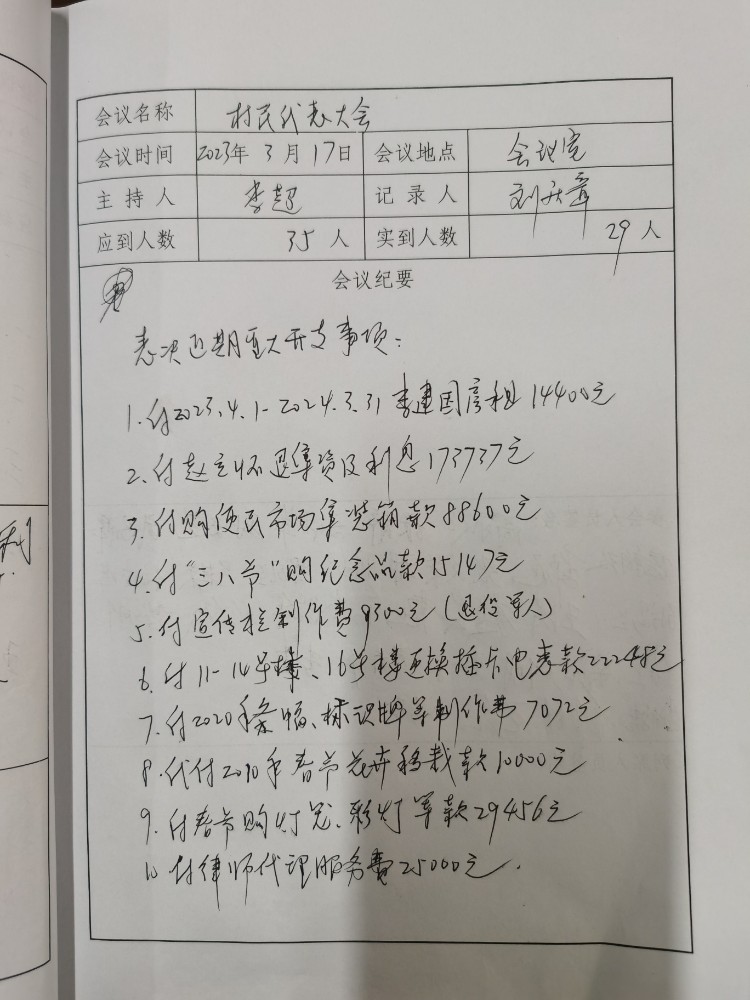 会议名称 村民代表大会
会议时间 2023年 3 月 17日 会议地点 会议室
主 持 人 李超 记 录 人 刘
应到人数 35 人 实到人数 29 人
会议纪要
表决近期重大开支事项：
1.付2023.4.1-2024.3.31李建国房租14400元
2.付赵立怀退集资及利息173737元
3.付购便民市场集装箱款88600元
4.付“三八节”购纪念品款15147元
5.付宣传栏制作费9300元(退役军人)
6.付11-14号楼、16号楼更换插卡电表款22248元
7.付2020年条幅、标识牌等制作费7072元
8.代付2010年春节花卉移栽款10000元
9.付春节购灯笼、彩灯等款29456元
10 付律师代理服务费25000元.
利